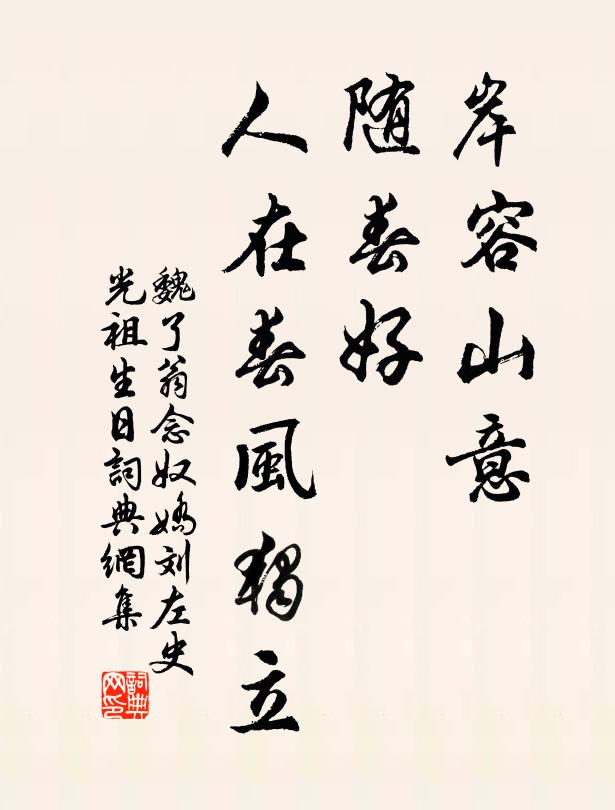 岸容山意
随春好
人在春風獨立
魏了翁念奴嬌刘左史
光祖生日詞典網集
詞典
网印